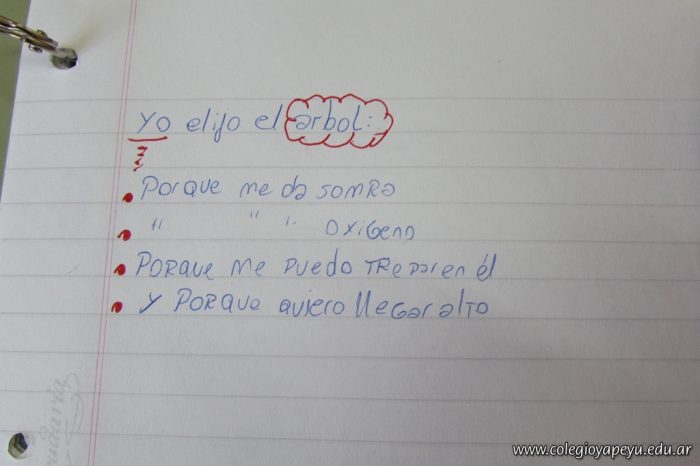 Yo elijo el arbol:
Porque me da somRa
" " " oxigeno
PORQUE me puedo TRepar en él
y PORQue quiero llegar alto
rudaria
www.colegioyapeyu.edu.ar